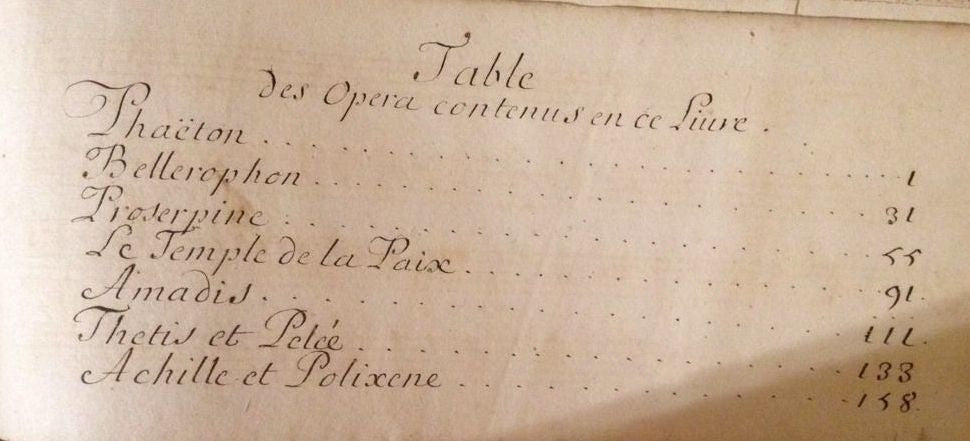 Table
des Opera contenus en ce Liure.
Phaëton 1
Bellerophon 31
Proserpine 55
Le Temple de la Paix 91
Amadis 111
Thetis et Pelée 133
Achille et Polixene 158